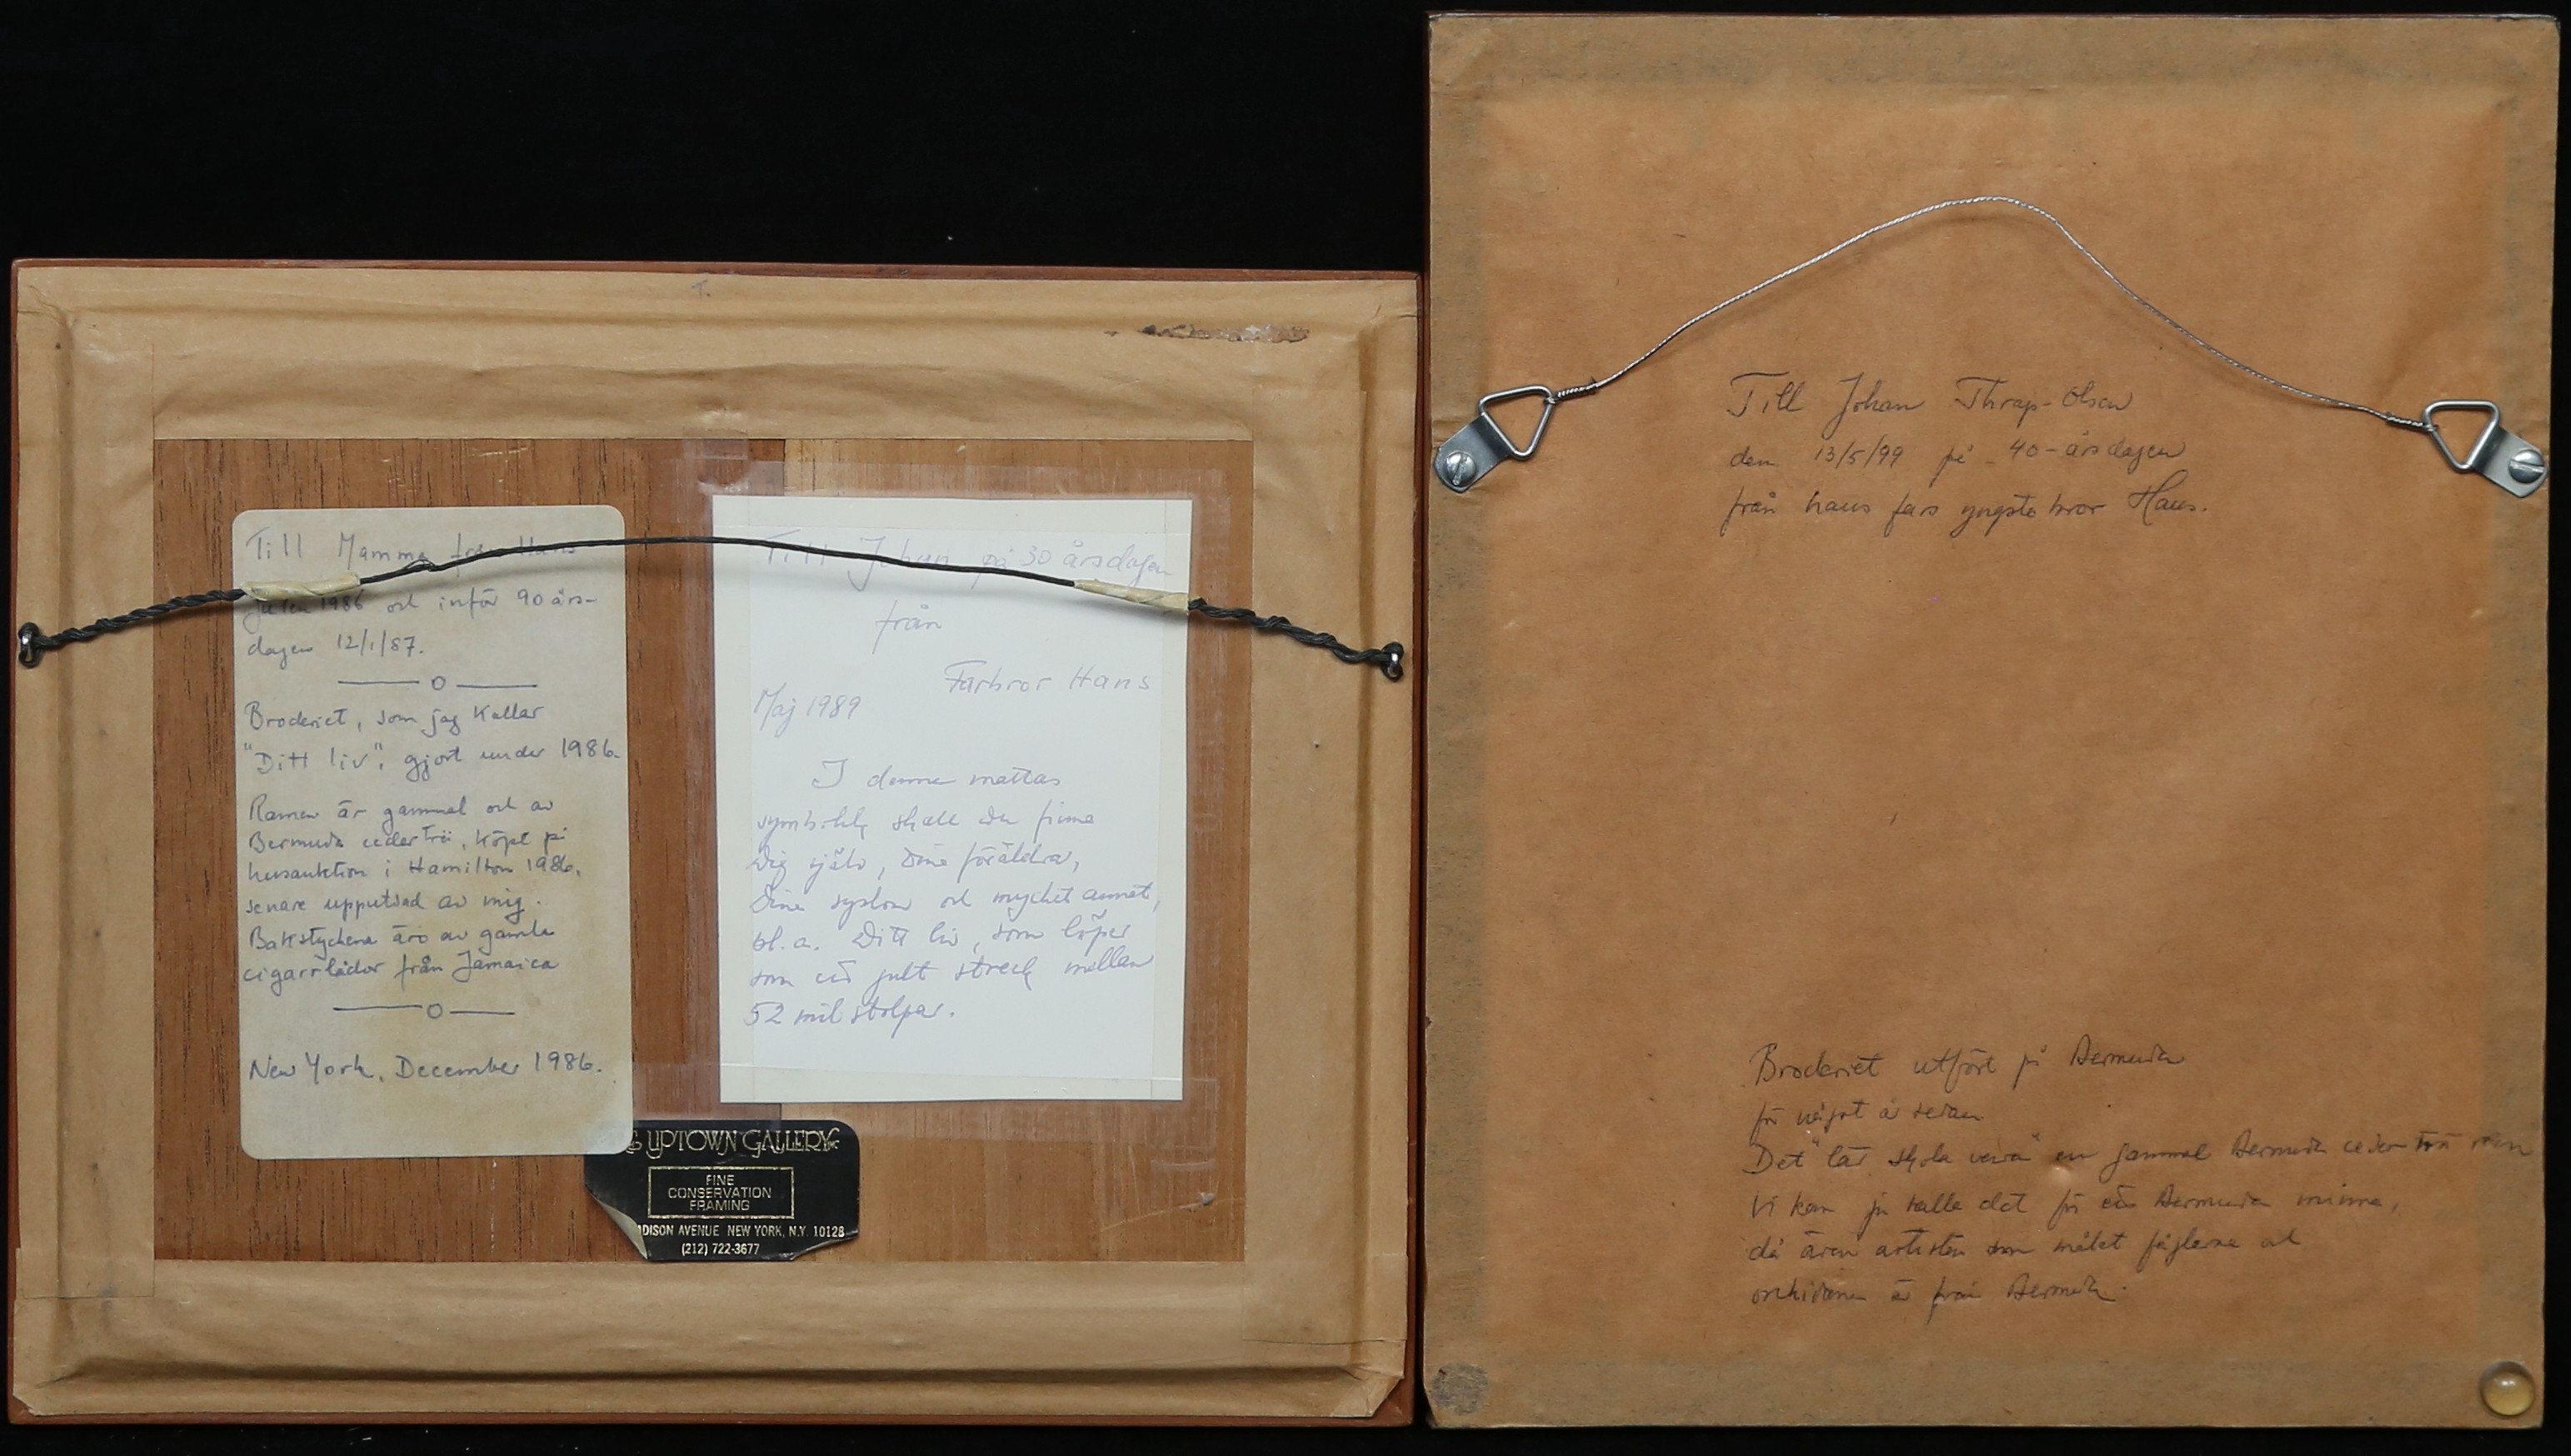 Till Mamma från Hans
Julen 1986 och inför 90 års-
dagen 12/1/87.
Broderiet, som jag kallar
"Ditt liv", gjort under 1986.
Ramen är gammal och av
Bermuda cederträ, köpt på
husauktion i Hamilton 1986,
senare upputsad av mig.
Bakstyckena äro av gamla
cigarrlådor från Jamaica
New York, December 1986.
Till Johan på 30 årsdagen
från
Farbror Hans
Maj 1989
I denna mattas
symbolik skall Du finna
Dig själv, Dina föräldrar,
Dina syskon och mycket annat,
bl. a. Ditt liv, som löper
som ett gult streck mellan
52 milstolpar.
UPTOWN GALLERY INC
FINE
CONSERVATION
FRAMING
DISON AVENUE NEW YORK, N.Y. 10128
(212) 722-3677
Till Johan Thrap-Olsen
den 13/5/99 på 40-årsdagen
från hans fars yngste bror Hans.
Broderiet utfört på Bermuda
för något år sedan.
Det "lär skola vara" en gammal Bermuda ceder trä ram
Vi kan ju kalla det för ett Bermuda minne,
då även artisten som målat fåglarna och
orkidéerna är från Bermuda.